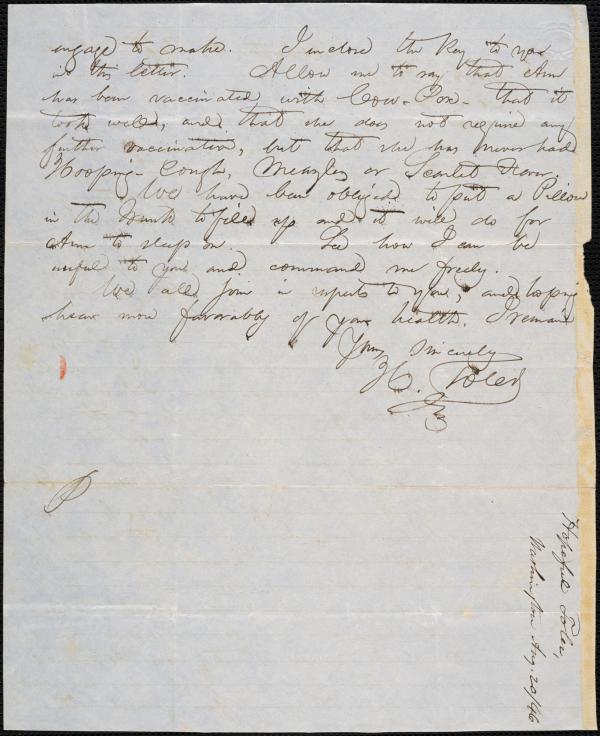 engage to make. I inclose the Key to you
in this letter. Allow me to say that Ann
has been vaccinated with Cow-Pox- that it
took well, and that she does not require any
further vaccination, but that she has never had
Hooping-Cough, Measles or Scarlet Fever.
We have been obliged to put a Pillow
in the Trunk to fill up and it will do for
Ann to sleep on. See how I can be
useful to you and command me freely.
We all join in respects to you, and hoping
hear more favorably of your health. I remain
Yours Sincerely
H. Toler
Hopeful Toler,
Washington Aug. 20/46